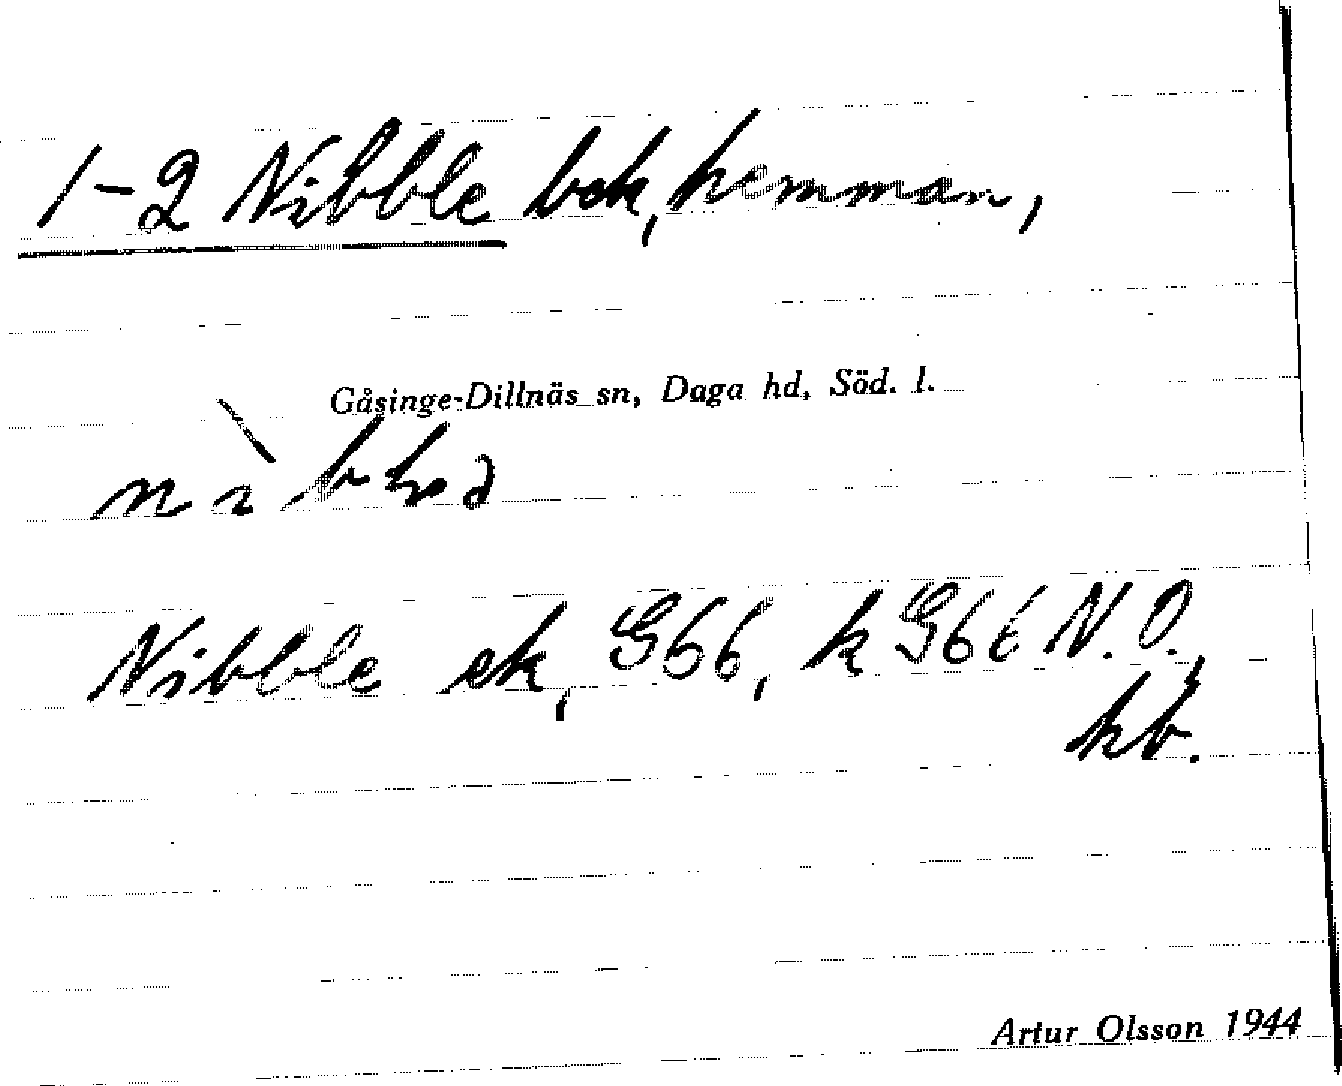 1-2 Nibble bek, hemman,
Gåsinge-Dillnäs sn, Daga hd, Söd. l.
Nibble ek, G66, k G66 N.O.,
hb.
Artur Olsson 1944